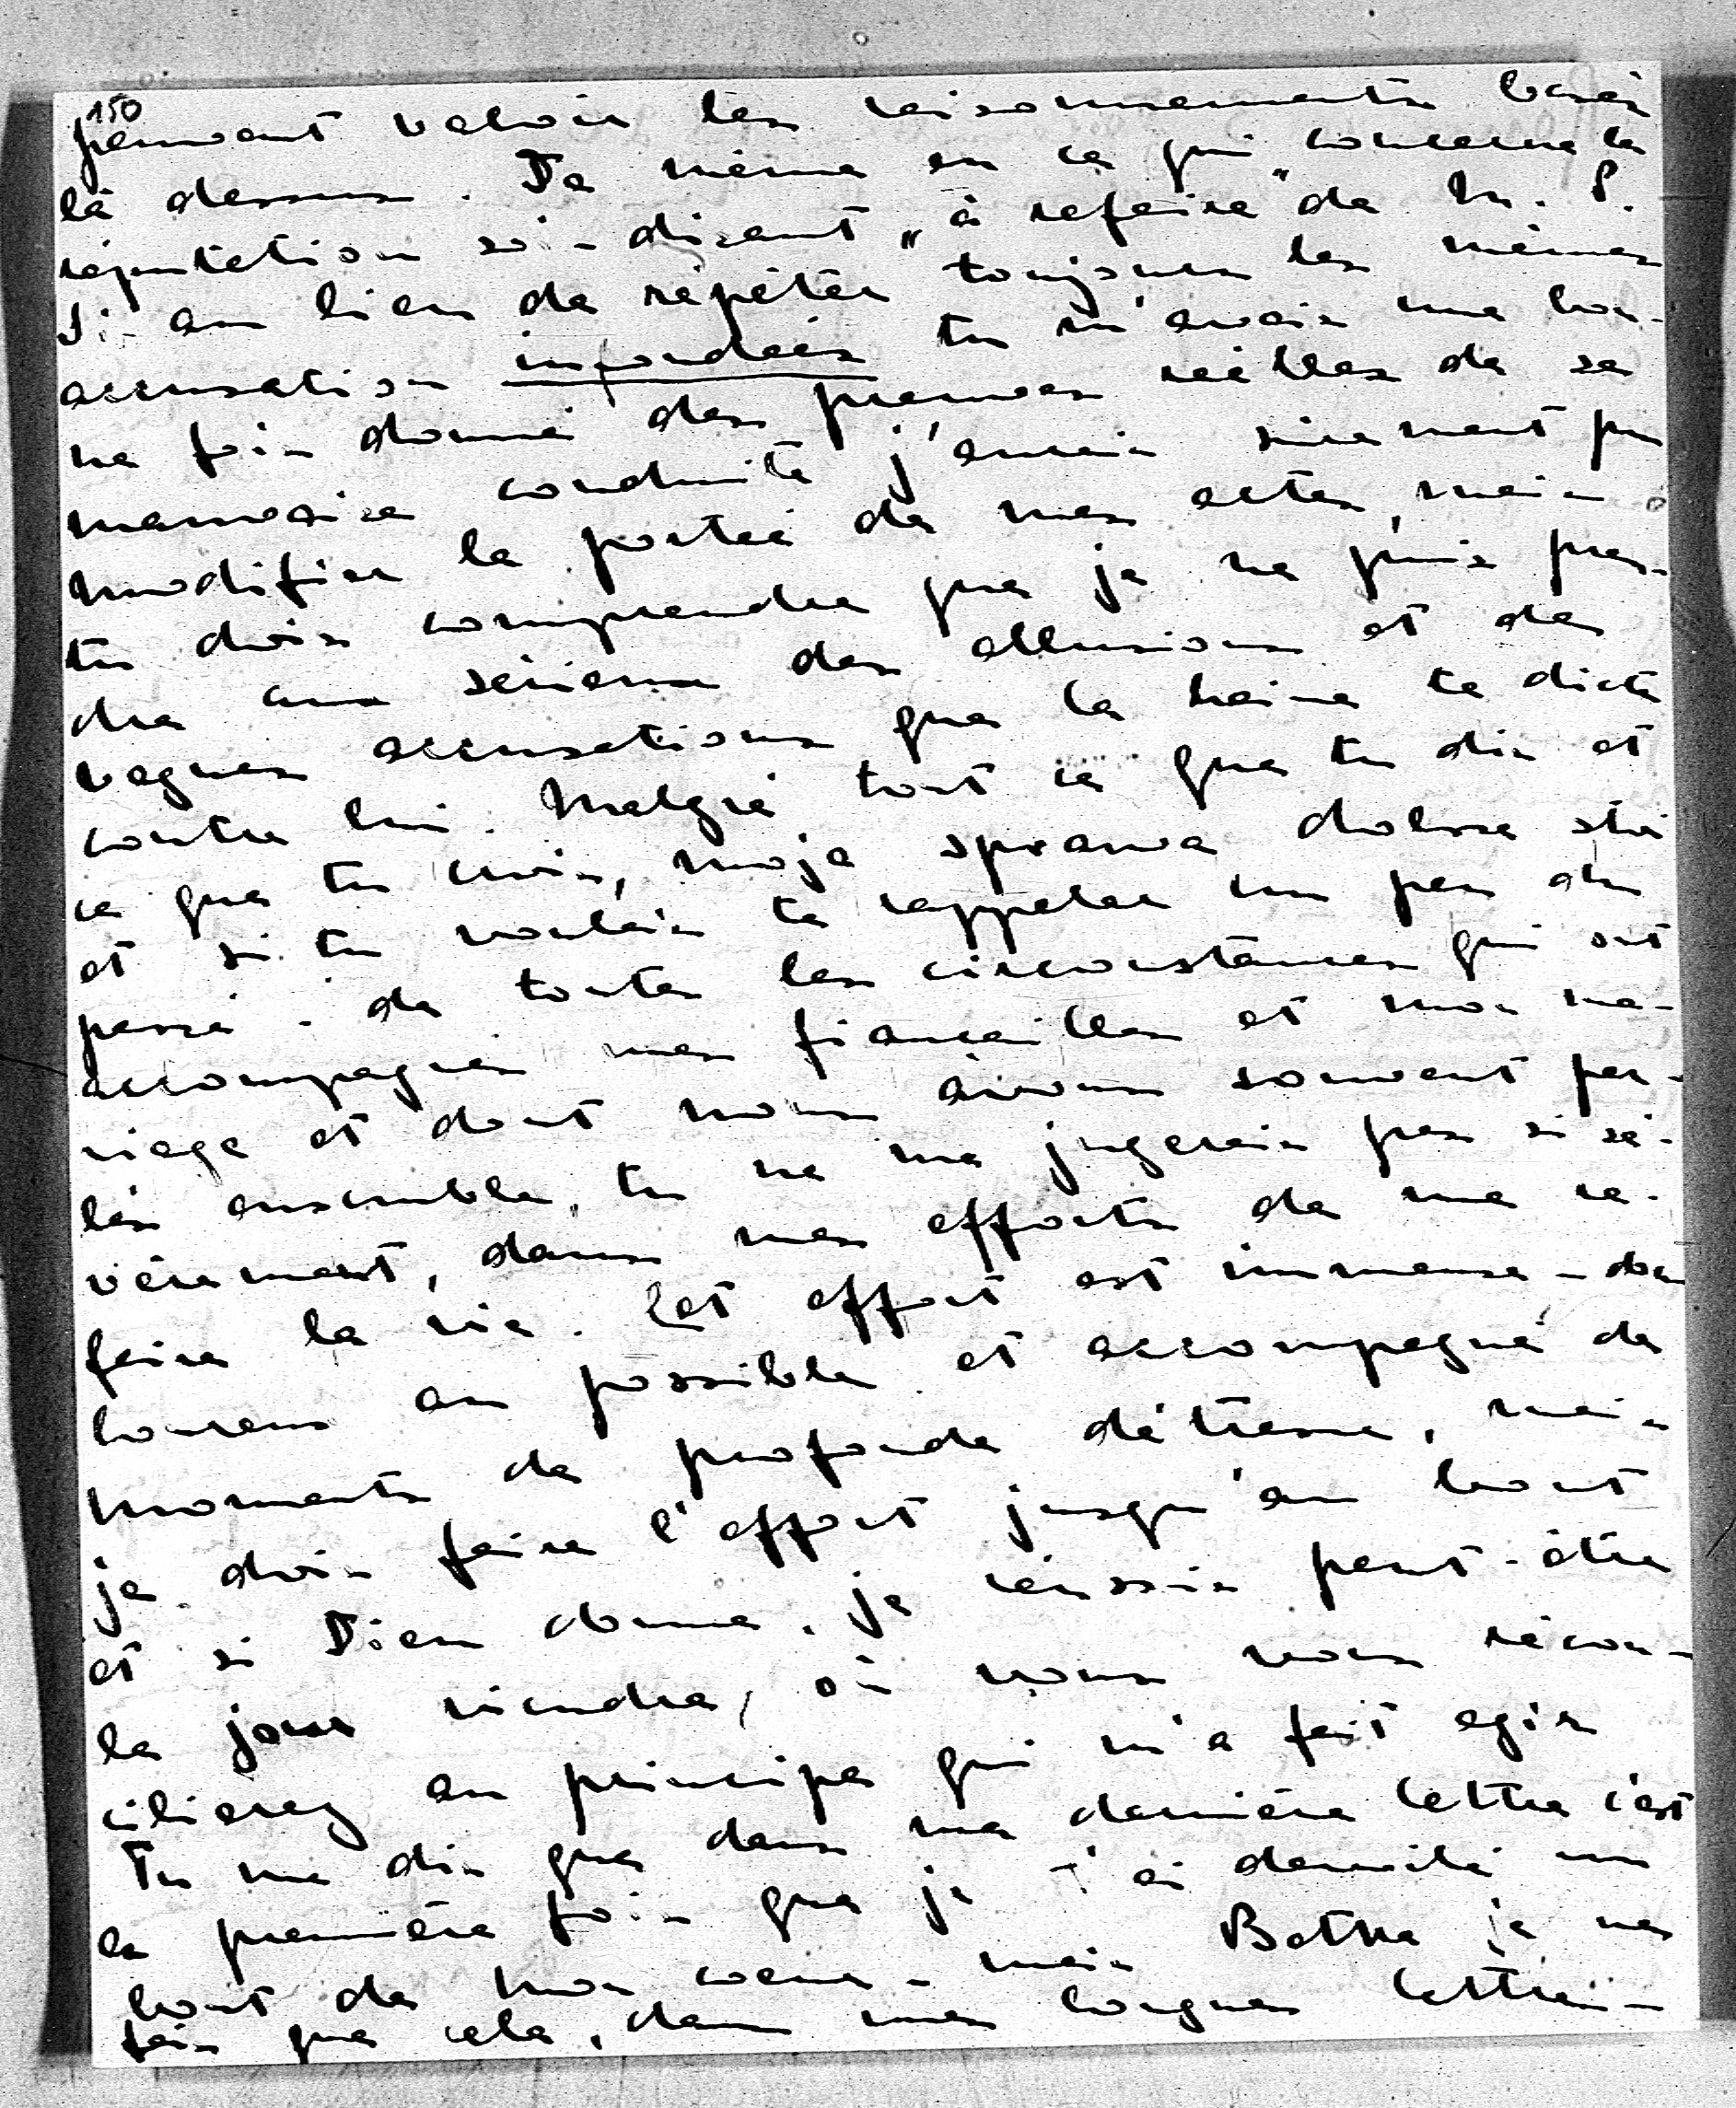 150
peuvent valoir les raisonnements basés
là dessus. De même en ce qui concerne la
réputation soi-disant „à refaire" de M. P.
Si au lieu de répéter toujours les mêmes
accusation infondées tu m'avais une bon-
ne fois donné des preuves réelles de sa
mauvaise conduite j'aurais sûrement pu
modifier la portée de mes actes, mais
tu dois comprendre que je ne puis pren-
dre au sérieux des allusions et des
vagues accusations que la haine te dicte
contre lui. Malgré tout ce que tu dis et
ce que tu crois, moja sprawa dobrze stoi
et si tu voulais te rappeler un peu du
passé - de toutes les circonstances qui ont
accompagné mes fiançailles et mon ma-
riage et dont nous avons souvent par-
lés ensemble, tu ne me jugerais pas si sé-
vèrement, dans mes efforts de me re-
faire la vie. Cet effort est immense - dou-
loureux au possible et accompagné de
moments de profonde détresse, mais
je dois faire l'effort jusqu'au bout
et si Dieu donne, je réussis peut-être
le jour viendra, où vous vous récon-
cilierez au principe qui m'a fait agir
Tu me dis que dans ma dernière lettre c'est
la première fois que je t'ai dévoilé un
bout de mon coeur - mais Botha je ne
fais que cela, dans mes longues lettres -